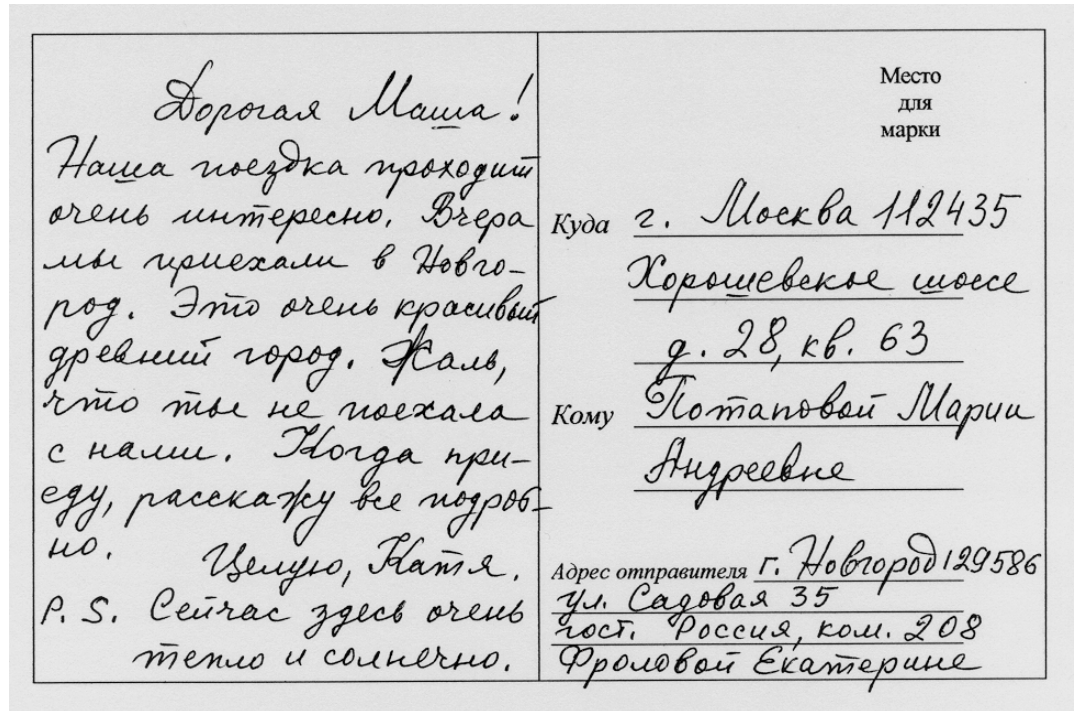 Дорогая Маша!
Наша поездка проходит
очень интересно. Вчера
мы приехали в Новго-
род. Это очень красивый
древний город. Жаль,
что ты не поехала
с нами. Когда при-
еду, расскажу все подроб-
но.
Целую, Катя.
P.S. Сейчас здесь очень
тепло и солнечно.
Место
для
марки
Куда г. Москва 112435
Хорошевское шоссе
д. 28, кв. 63
Кому Потаповой Марии
Андреевне
Адрес отправителя г. Новгород 129586
ул. Садовая 35
гост. Россия, ком. 208
Фроловой Екатерине